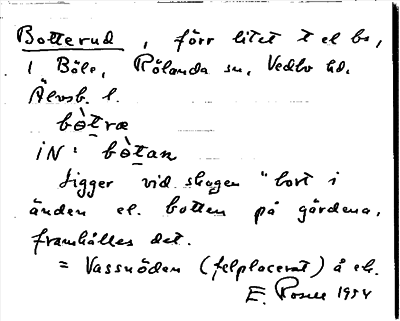 Botterud, förr litet t el bs,
i Böle, Rölanda sn, Vedbo hd.
Älvsb. l.
bòtræ
iN: bòtan
Ligger vid skogen "bort i
änden el. botten på gårdena,
framhålles det.
= Vassnöden (felplacerat) å ek.
E. 1954